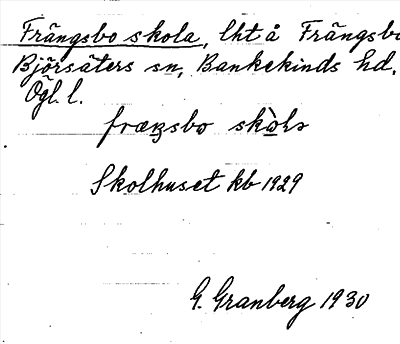 Frängsbo skola, lht å Frängsbo
Björsäters sn, Bankekinds hd.
Ögl. l.
fræŋsbo skò̱lɑ
Skolhuset kb 1929
G. Granberg 1930